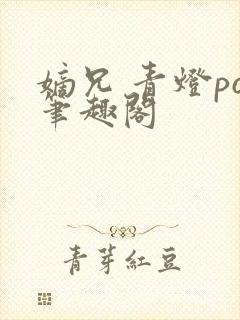 嫡兄 青燈po
筆趣閣
青芽紅豆